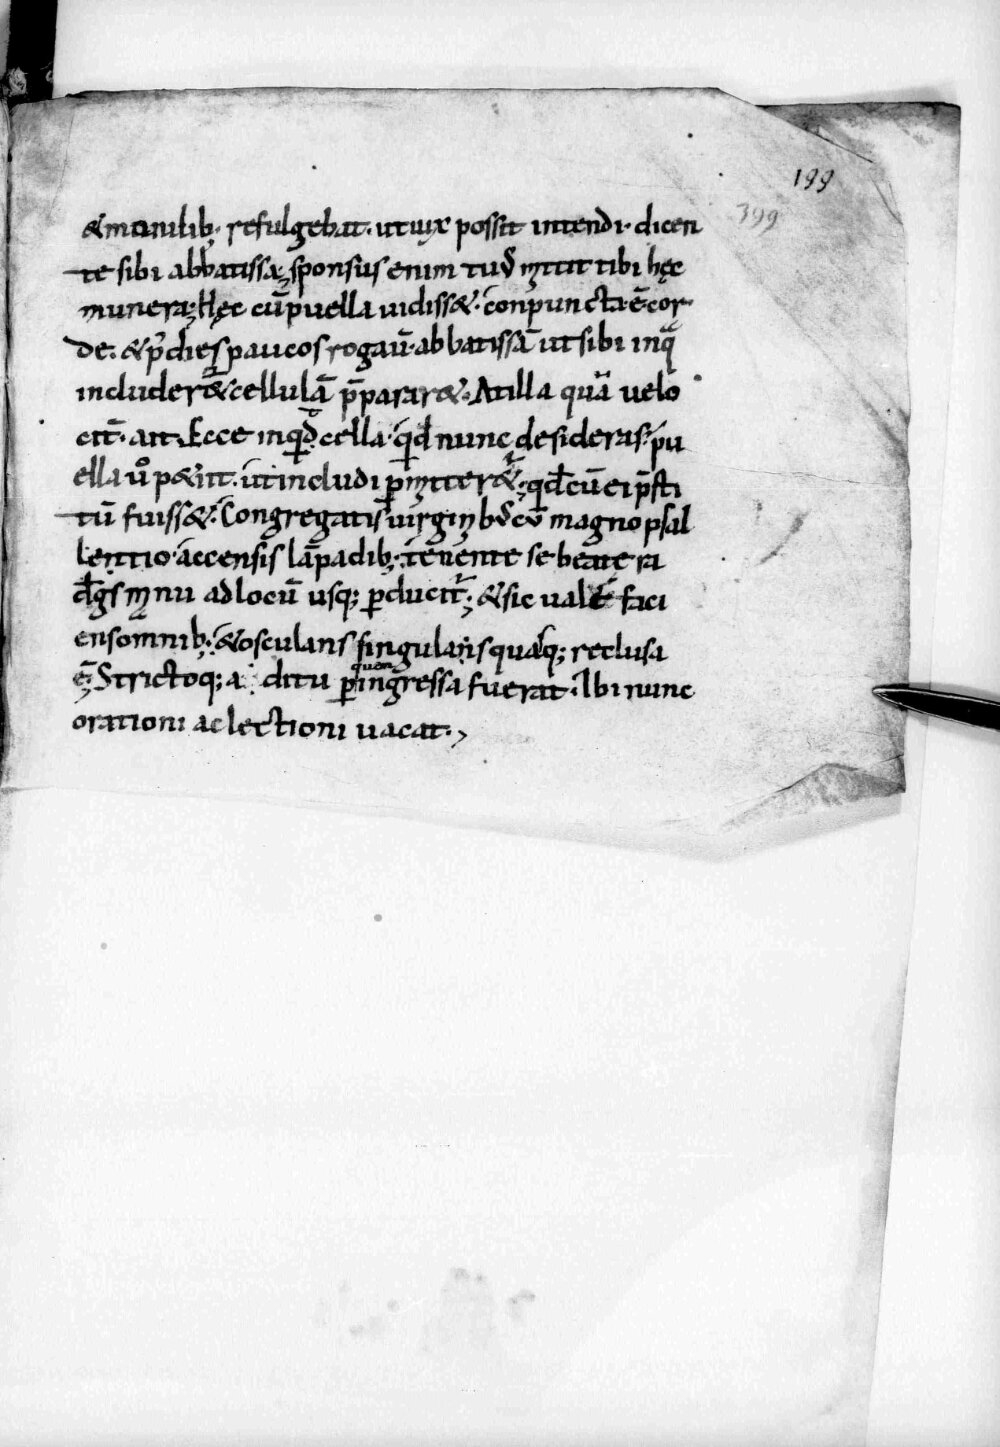 199
399
&monilib; refulgebat· ut uix possit intendi· dicen
te sibi abbatissa; sponsus enim tuus mittit tibi hęc
munera; Hęc cū puella uidiss&· conpuncta ē cor
de· & p dies paucos rogaū abbatissā ut sibi inq̄
includer& cellulā p̄parar&· At illa quā uelo
cit̄· ait· Ecce inquid cella· qd nunc desideras· pu
ella u° p&iit· ut includi p̄mitter&; qd cū ei p̄sti
tū fuiss&· Congregatis uirginib; cū magno psal
lentio· accensis lāpadib; tenente se beate ra
degs manu ad locū usq; p̄ducit̄; & sic uale faci
ens omnib; & osculans singulasquasq; reclusa
ē; Strictoq; a ditu p quem ingressa fuerat· Ibi nunc
orationi ac lectioni uacat·